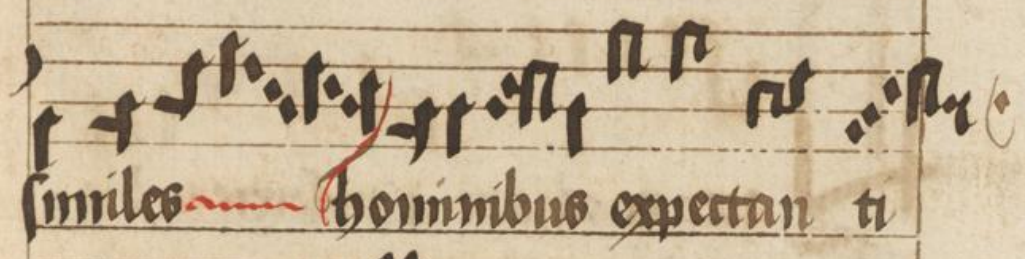 similes hominibus expectan ti